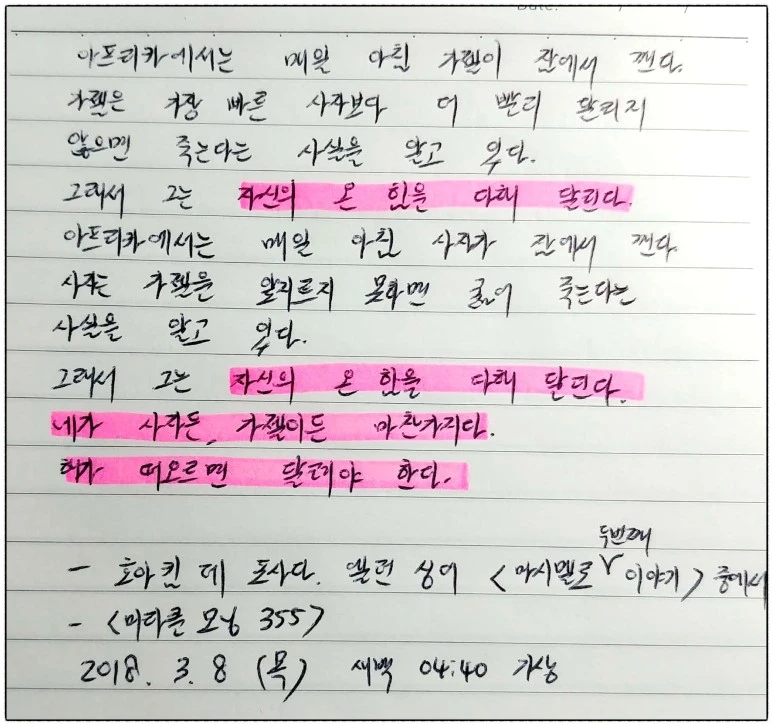 Date:
아프리카에서는 매일 아침 가젤이 잠에서 깬다.
가젤은 가장 빠른 사자보다 더 빨리 달리지
않으면 죽는다는 사실을 알고 있다.
그래서 그는 자신의 온 힘을 다해 달린다.
아프리카에서는 매일 아침 사자가 잠에서 깬다.
사자는 가젤을 앞지르지 못하면 굶어 죽는다는
사실을 알고 있다.
그래서 그는 자신의 온 힘을 다해 달린다.
네가 사자든, 가젤이든 마찬가지다.
해가 떠오르면 달려야 한다.
- 호아킨 데 포사다. 엘런 싱어 <마시멜로 두번째 이야기> 중에서
- <미라클 모닝 355>
2018. 3. 8 (목) 새벽 04:40 기상